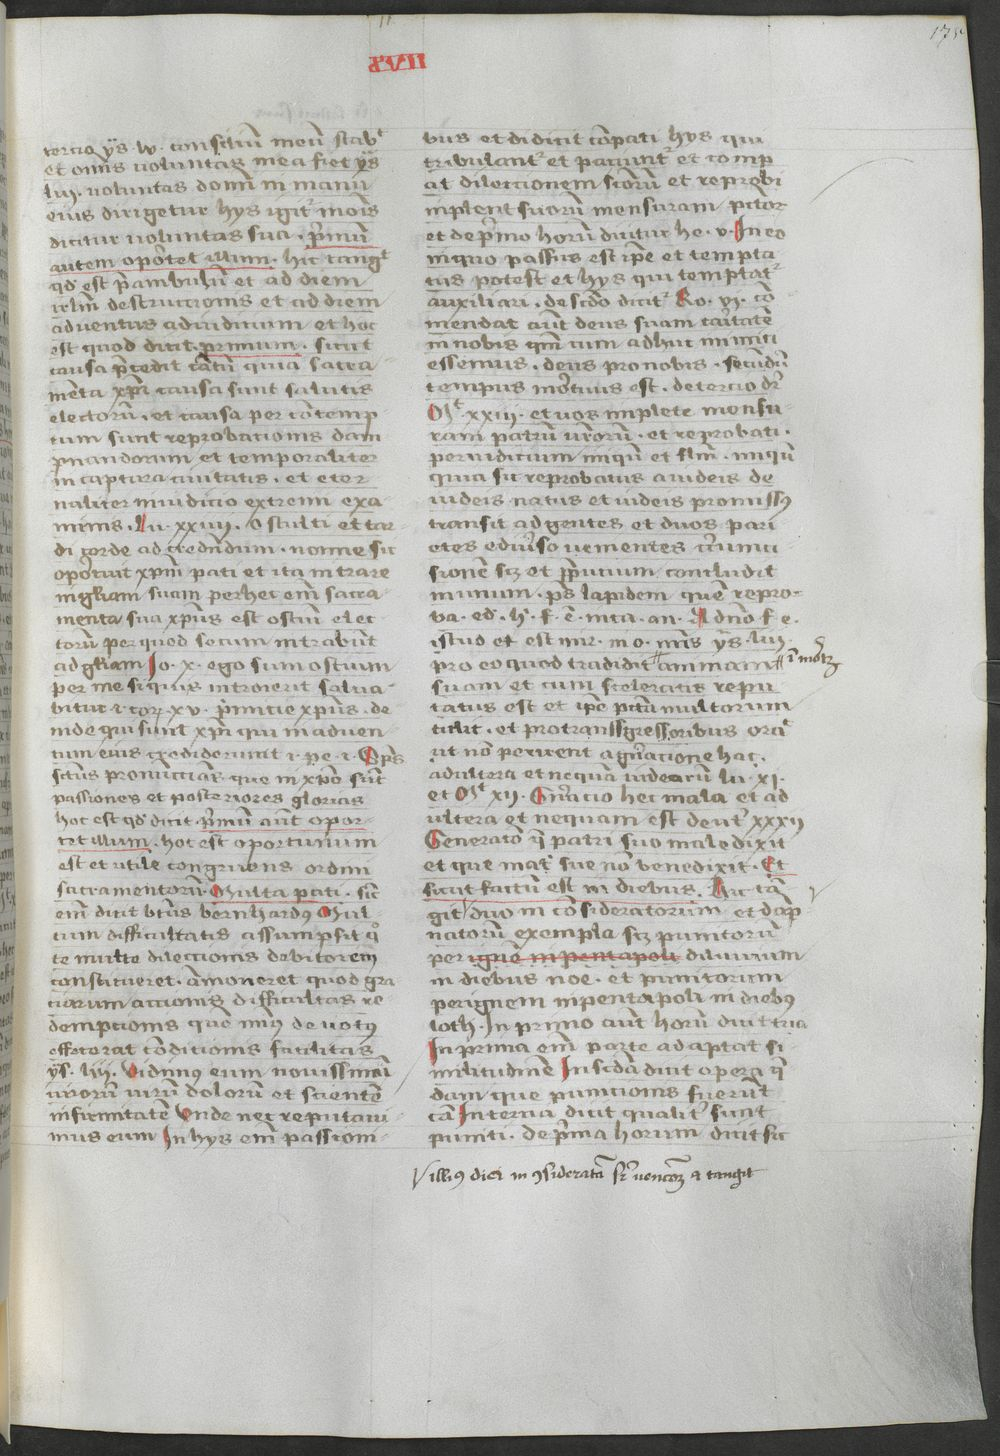 XVII
175
tercio ys. xlvi. consiliū meū stabᵗ
et oīnis voluntas mea fiet ys
liii. voluntas domī in manu
eius dirigetur hys igitᵗ mois
dicitur voluntas sua. p̄mū
autem oportet illum. hic tangᵗ
qd̄ est p̄ambulū et ad diem
irlm̄ destructionis et ad diem
adventus ad iudicium et hoc
est quod dicit. primum. sicut
causa p̄cedit cātū quia sacra
mēta xp̄i causa sunt salutis
electorū. et causa per cōtemp
tum sunt reprobationis dam
pnandorum et temporaliter
in captura civitatis. et eter
naliter in iudicio extremi exa
minis. Lu. xxiiii. O stulti et tar
di corde ad credēdum. nonne sic
oportuit xp̄m pati et ita intrare
in gl̄iam suam per hec em̄ sacra
menta sua xp̄us est ostiū elec
torū per quod secum intrabūt
ad gl̄iam Io. x. ego sum ostium
per me si quis introierit salva
bitur. i. cor. xv. p̄mitie xp̄us. de
inde qui sunt xp̄i qui in adven
tum eius crediderunt i. pe. i. Sps
sctūs pronuncians que in xp̄o sūt
passiones et posteriores glorias
hoc est qd̄ dicit p̄mū aūt opor
tet illum. hoc est oportunum
est et utile congruens ordini
sacramentorū. Multa pati. sic̄
em̄ dicit btūs bernhardꝰ Mul
tum difficultatis assumpsit qͦ
te multe dilectionis debitorem
constitueret. āmoneret quod gra
ciarum actionis difficultas re
demptionis quē minꝰ devotū
effecerat cōditionis facilitas
ys. liii. Vidimus eum novissimū
virorū virum dolorū et scientē
infirmitatē Unde nec reputavi
mus eum In hys em̄ passioni
bus et didicit cōpati hys qui
tribulantᵗ et paciuntᵗ et comp
at dilectionem sctorū et reprobi
inplent suorū mensuram pctor
et de p̄mo horū dicitur he. v. In eo
in quo passus est ip̄e et tempta
tus potest et hys qui temptātᵗ
auxiliari. de scdo dicitᵗ Ro. v. cō
mendat aūt deus suam caritatē
in nobis qm̄ cum adhuc inimici
essemus. deus pro nobis. secundū
tempus mortuus est. de tercio dr̄
Mᵗ xxiii. et vos implete mensu
ram patrū vr̄orū. et reprobati.
per iudicium iniqū et stm̄. iniqū
quia sic reprobatus a iudeis de
iudeis natus et iudeis promissus
transit ad gentes et duos pari
etes e diverso venientes circūci
sionē scz et p̄pucium concludit
in unum. p̄s lapidem quē repro
va. ed. h. f. ē. in ca. an. A dn̄o f. e.
istud et est mir. in o. n̄ris ys. liii.
pro eo quod tradidit animam
ī mortē
suam et cum sceleratis repu
tatus est et ip̄e pctū multorum
tulit. et pro transgressoribus oraᵗ
ut nō perirent a gn̄acione hac.
adultera et nequā iudeorū lu. xi.
et Mᵗ xii. Gn̄racio hec mala et ad
ultera et nequam est deutᵗ xxxii
Generatō q̄ patri suo maledixit
et que matᵗ sue nō benedixit. Et
sicut factū est in diebus. Hic tā
git duo in consideratorum et dāp
natorū exempla scz punitorū
per igne in pentapoli diluvium
in diebus noe. et punitorum
per ignem in pentapoli in diebꝰ
loth. In primo aūt horū dicit tria
In prima em̄ parte adaptat si
militudinē In scda dicit opera q̄
dam que punitionis fuerūt
cā In tercia dicit qualitᵗ sunt
puniti. de p̄ma horum dicit sic
illiꝰ diei in ꝯsideratā
tangit